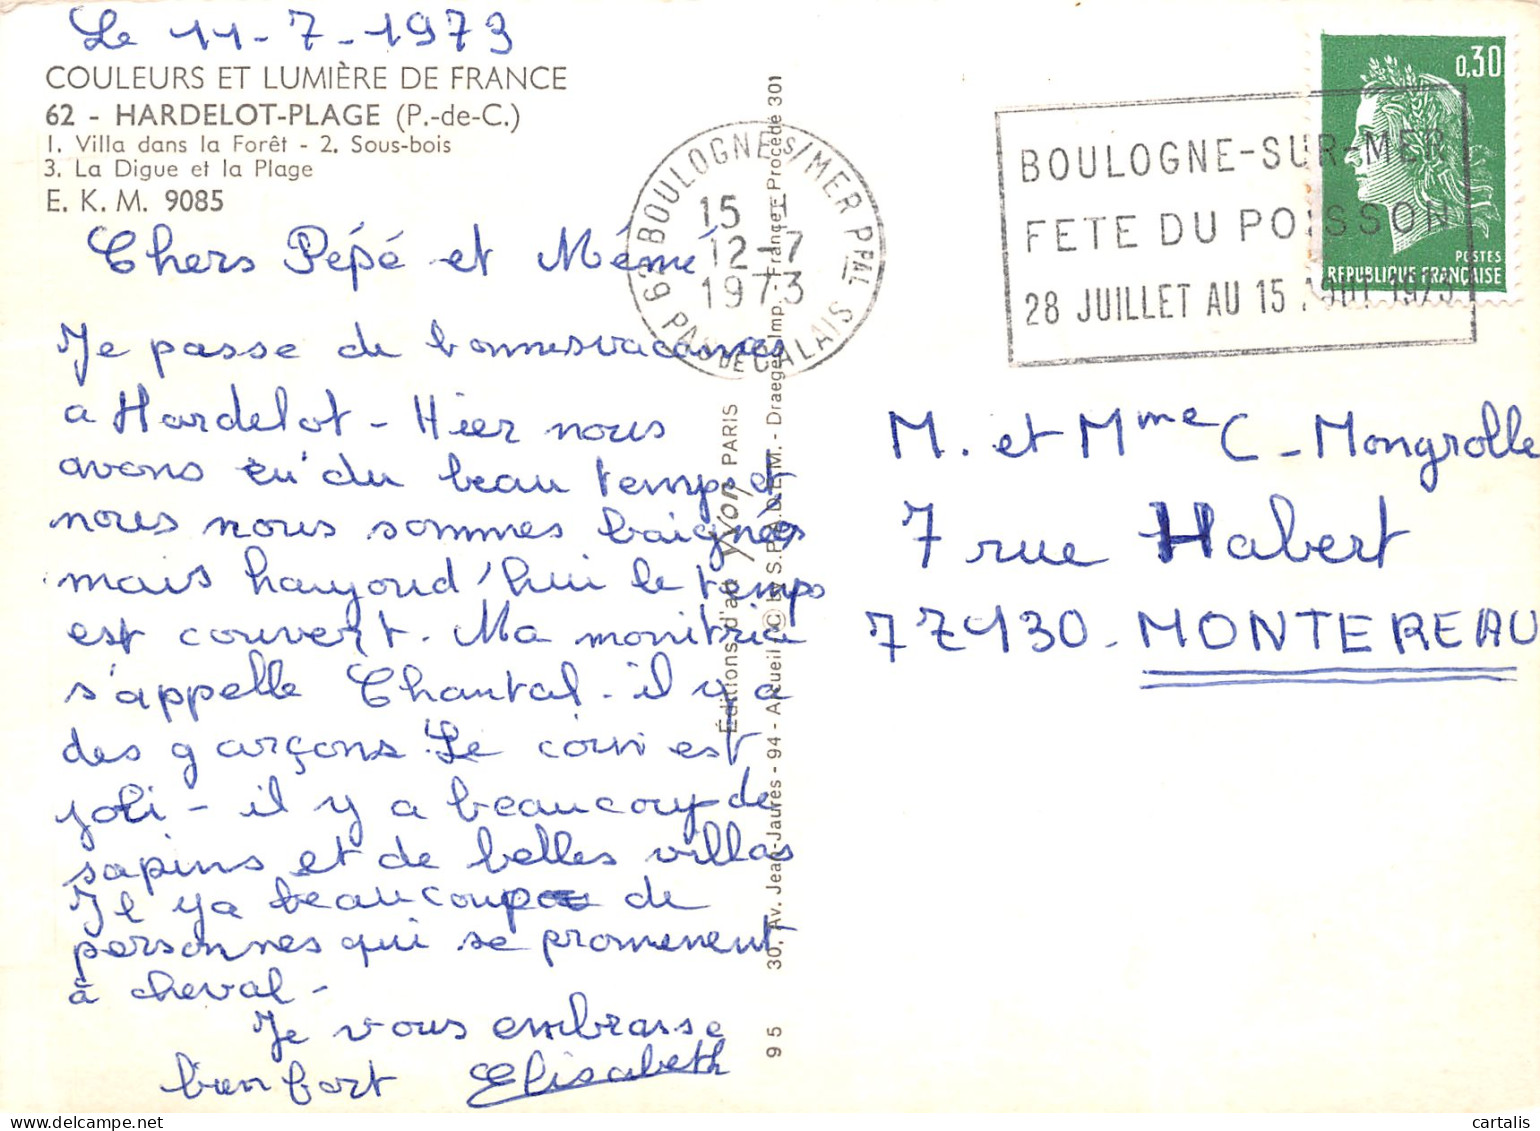 Le 11-7-1973
COULEURS ET LUMIÈRE DE FRANCE
62 - HARDELOT-PLAGE (P.-de-C.)
1. Villa dans la Forêt - 2. Sous-bois
3. La Digue et la Plage
E. K. M. 9085
Chers Pépé et Mémé
Je passe de bonnes vacances
a Hardelot - Hier nous
avons eu du beau temps et
nous nous sommes baignées
mais haujourd'hui le temps
est couvert. Ma monitrice
s'appelle Chantal - il y a
des garçons. Le coin est
joli - il y a beaucoup de
sapins et de belles villas
Il y a beaucoup de
personnes qui se promenent
à cheval -
Je vous embrasse
bien fort Elisabeth
62 BOULOGNE S/MER PPAL PAS DE CALAIS
15
12-7
1973
Éditions d'art Yvon PARIS
30, Av. Jean-Jaurès - 94 - Arcueil (C) by S.P.A.D.E.M. - Draeger Imp. - France - Procédé 301
95
BOULOGNE-SUR-MER
FETE DU POISSON
28 JUILLET AU 15 AOUT 1973
0,30
POSTES
REPUBLIQUE FRANÇAISE
M. et Mme C - Mongrolle
7 rue Habert
77130 - MONTEREAU
cartalis
cartalis.com